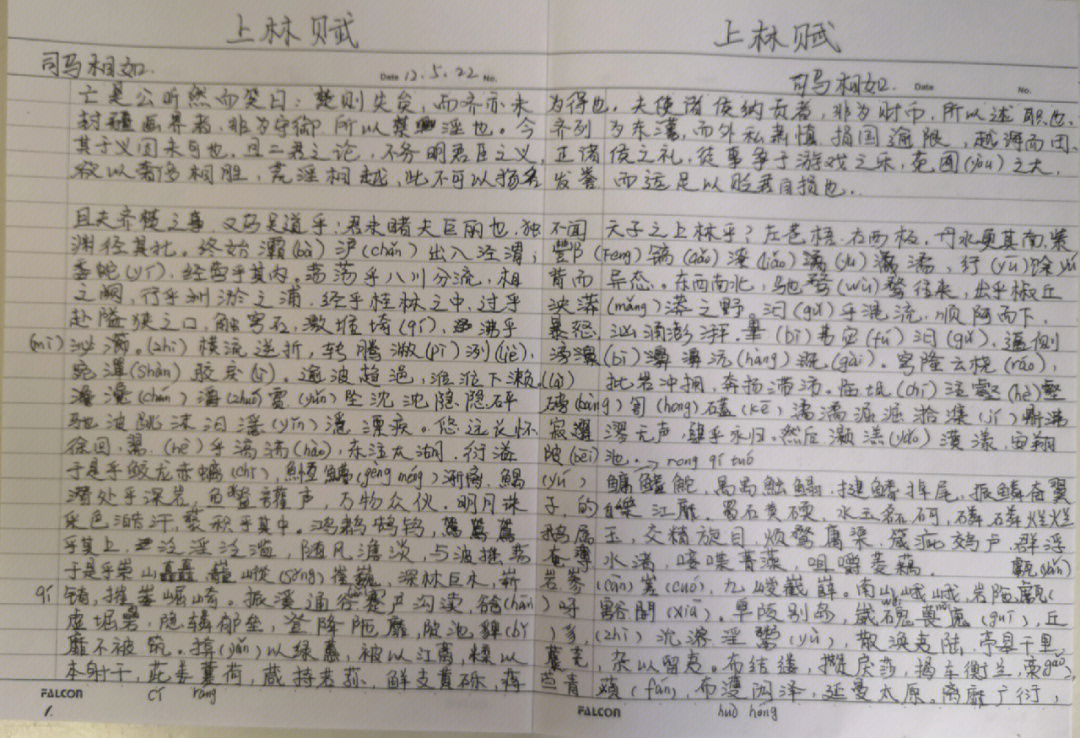 上林赋 上林赋
司马相如. Date 12.5.22 No. 司马相如. Date No.
亡是公听然而笑曰：楚则失矣，而齐亦未为得也，夫使诸侯纳贡者，非为财币，所以述职也.
封疆画界者，非为守御，所以禁淫也。今齐列为东藩，而外私肃慎，捐国逾限，越海而田.
其于义固未可也，且二君之论，不务明君臣之义，正诸侯之礼，徒事争于游戏之乐，苑囿(yòu)之大,
欲以奢侈相胜，荒淫相越，此不可以扬名发誉而适足以贬君自损也.
且夫齐楚之事，又乌足道乎，君未睹夫巨丽也，独不闻天子之上林乎？左苍梧，右西极，丹水更其南，紫
渊径其北。终始灞(bà)浐(chǎn)出入泾渭，酆(Feng)镐(gǎo)潦(liáo)潏
委蛇(yí)，经营乎其内。荡荡乎八川分流，相背而异态。东西南北，驰骛(wù)往来，出乎椒丘
之阙，行乎洲淤之浦，经乎桂林之中，过乎泱莽(mǎng)之野。汩(gǔ)乎混流，顺阿而下，
赴隘狭之口，触穹石，激堆埼(qí)，沸乎暴怒，汹涌澎湃. (bì)弗宓(fú)汩(gǔ)，逼侧
横流逆折，转腾潎(pī)洌(liè)，(hàng)溉(gài)。穹隆云桡(ráo)，
(shàn)胶戾(lì)。逾波趋浥，涖涖下濑，批岩冲拥，奔扬滞沛。临坻(chí)注壑(hè)
(chán)霣(yǔn)坠，沈沈隐隐，砰磅(bàng)訇(hong)磕(kē)
驰波跳沫，汩(yīn)漂疾。悠远长怀，寂漻无声，肆乎永归。然后灏溔(yǎo)潢漾，安翔
徐回，翯(hè)乎滈滈(hào)，东注太湖，衍溢陂(bēi)池。 rong qí tuó
于是乎蛟龙赤螭(chī)，(gèng méng)渐离，鰅(yú)鳙鳍鮀，禺禺魼鳎，揵鳍掉尾，振鳞奋翼
潜处乎深岩，鱼鳖讙声，万物众伙。明月珠子，的皪江靡。蜀石黄碝，水玉磊砢，磷磷烂烂
采色澔汗，藂积乎其中。鸿鹔鹄鸨，鴐鹅属玉，交精旋目，烦鹜庸渠，箴疵鵁卢，群浮
乎其上，泛淫泛滥，随风澹淡，与波摇荡，奄薄水渚，唼喋菁藻，咀嚼菱藕. 甗(yǎn)
于是乎崇山矗矗，巃嵷(sǒng)崔巍，深林巨木，崭岩参(cēn)嵯(cuó)，九嵕嶻嶭。南山峨峨，岩陁甗
qí 锜，摧崣崛崎。振溪通谷，蹇产沟渎，谽(hān)呀豁閜(xiǎ)。阜陵别岛，崴磈(guī)，丘
虚堀礨，隐辚郁垒，登降陁靡，陂池貏(bǐ)豸(zhì)沇溶淫鬻(yù)，散涣夷陆，亭皋千里，
靡不被筑。揜(yǎn)以绿蕙，被以江离，糅以蘪芜，杂以留夷。布结缕，攒戾莎，揭车衡兰，
本射干，茈姜蘘荷，葴持若荪，鲜支黄砾，蒋苎青薠(fán)，布濩闳泽，延曼太原。离靡广衍，
FALCON cǐ ráng
1.
FALCON huò hóng